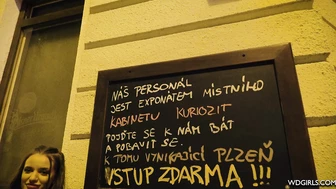 NÁŠ PERSONÁL
JEST EXPONÁTEM MÍSTNÍHO
KABINETU KURIOZIT
POJĎTE SE K NÁM BÁT
A POBAVIT SE.
K TOMU VZNIKAJÍCÍ PLZEŇ
VSTUP ZDARMA !!!
WDGIRLS.COM